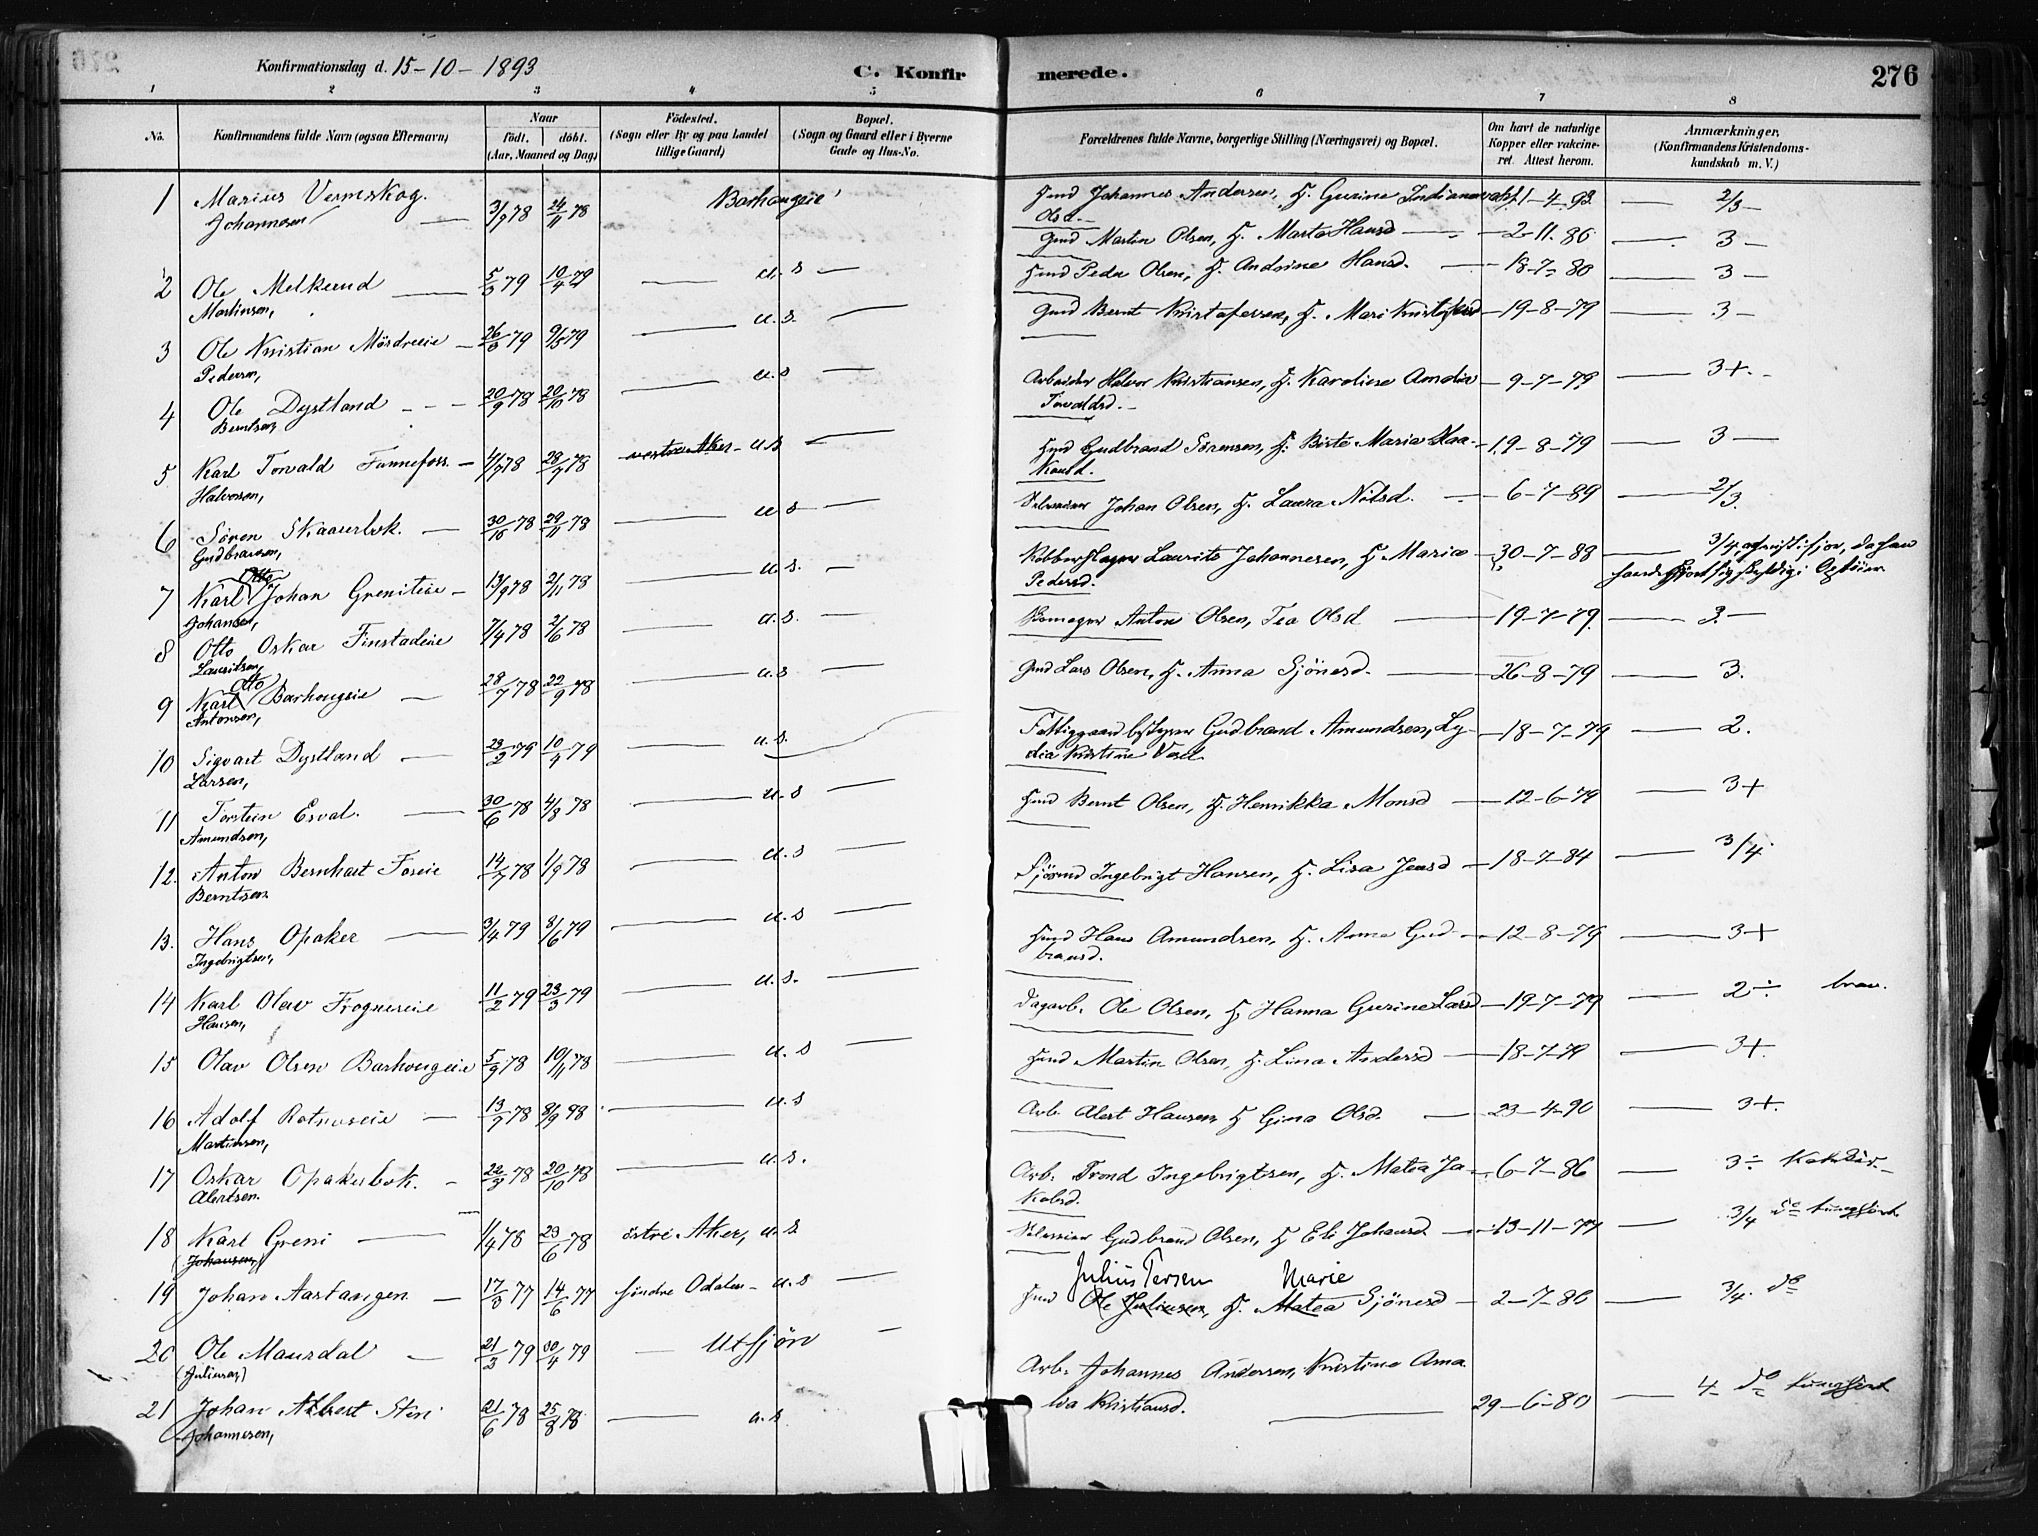 Konfirmationsdag d. 15-10-1893
C. Konfirmerede.
276
1 2 3 4 5 6 7 8
No.
Konfirmandens fulde Navn (ogsaa Efternavn)
Naar
født. døbt.
(Aar, Maaned og Dag)
Fødested.
(Sogn eller By og paa Landet
tillige Gaard)
Bopæl.
(Sogn og Gaard eller i Byerne
Gade og Hus-No.
Forældrenes fulde Navne, borgerlige Stilling (Næringsvei) og Bopæl.
Om havt de naturlige
Kopper eller vakcine-
ret. Attest herom.
Anmærkninger,
(Konfirmandens Kristendoms-
kundskab m. V.)
1 Marius Vermskog. 3/9 78 24/11 78 Barhaugeie
Johannesen
Johannes Andersen, H. Gurine 1-4-93 2/3
Olsd.
2 Ole Melkerud 5/3 79 10/4 79 u. s
Martinsen,
Gmd Martin Olsen, H. Marta Hansd 2-11-86 3
3 Ole Kristian Mørdreeie 26/3 79 9/5 79 u. s.
Pedersen,
Hmd Peder Olsen, H. Andrine Hansd. 18-7-80 3
4 Ole Dystland 20/9 78 20/10 78 u. s
Berntsen,
Gmd Bernt Kristofersen, H. Mari 19-8-79 3
5 Karl Torvald Funnefoss 4/7 78 28/7 78 vestre Aker u. s
Halvorsen,
Arbeider Halvor Kristiansen, H. Karoline Amdia 9-7-79 3+.
Torvaldsd.
6 Søren Skaaurbok. 30/10 78 29/11 78 u s
Gudbransen,
Hmd Gudbrand Sørensen, H. Birte Maria Haa- 19-8-79 3
konsd.
7 Karl Otto Johan Grenieie 13/9 78 2/11 78 u. s.
Johansen,
Johan Olsen, H. Laura Nilsd. 6-7-89 2/3.
8 Otto Oskar Finstadeie 7/4 78 2/6 78 u. s.
Lauritsen,
Kobberslager Laurits Johannesen, H Maria 30-7-88 3/4
Pedersd.
9 Karl Otto Barhougeie 28/7 78 22/9 78 u. s
Antonsen,
Anton Olsen, Tea Olsd 19-7-79. 3.
10 Sigvart Dystland 23/2 79 10/4 79 u. s.
Larsen,
Gmd Lars Olsen, H. Anna Sjønesd. 26-8-79 3.
11 Torstein Esval. 30/6 78 4/8 78 u. s
Amundsen,
Fattiggaardbestyrer Gudbrand Amundsen, Ly- 18-7-79 2.
dia Kristine
12. Anton Bernhart Foseie 14/7 78 1/9 78 u. s
Berntsen
Hmd Bernt Olsen, H. Henrikka Monsd 12-6-79 3+
13. Hans Opaker 3/4 79 8/6 79 u. s
Ingebrigtsen,
Ingebrigt Hansen, H. Lisa Jensd 18-7-84 3/4.
14 Karl Olav Frognereie 11/2 79 23/3 79 u. s.
Hansen,
Hmd Hans Amundsen, H. Anna Gud- 12-8-79 3+
bransd.
15 Olav Olsen Barhougeie 5/9 78 10/11 78 u. s
Dagarb. Ole Olsen, H Hanna Gurine Larsd 19-7-79 2÷ brav.
16 Adolf Rotneseie 13/7 78 8/9 98. u. s
Martinsen,
Hmd Martin Olsen, H. Lina Andersd 18-7-79 3+.
17 Oskar Opakerbok. 22/8 78 20/10 78 u. s.
Alertsen.
Arb. Alert Hansen, H Gina Olsd. 23-4-90 3+.
18 Karl Greni 1/4 78 23/6 78 østre Aker, u. s
(Johansen,)
Arb. Trond Ingebrigtsen, H. Matea Ja- 6-7-86 3÷
kobsd.
19 Johan Aastangen 17/3 77 14/6 77 søndre Odalen u. s
Gudbrand Olsen, H Eli Johansd. 13-11-77 3/4
20 Ole Mausdal 21/3 79 30/4 79 Utsjøn
(Juliusen)
Julius Tersen Marie
Hmd Ole Juliusen, H. Matea Sjønesd 2-7-86 3/4. do
21 Johan Albert 21/6 78 25/8 78 u. s.
Johannesen,
Arb. Johannes Andersen, Kristine Ama
lia Kristiansd. 29-6-80 4- do